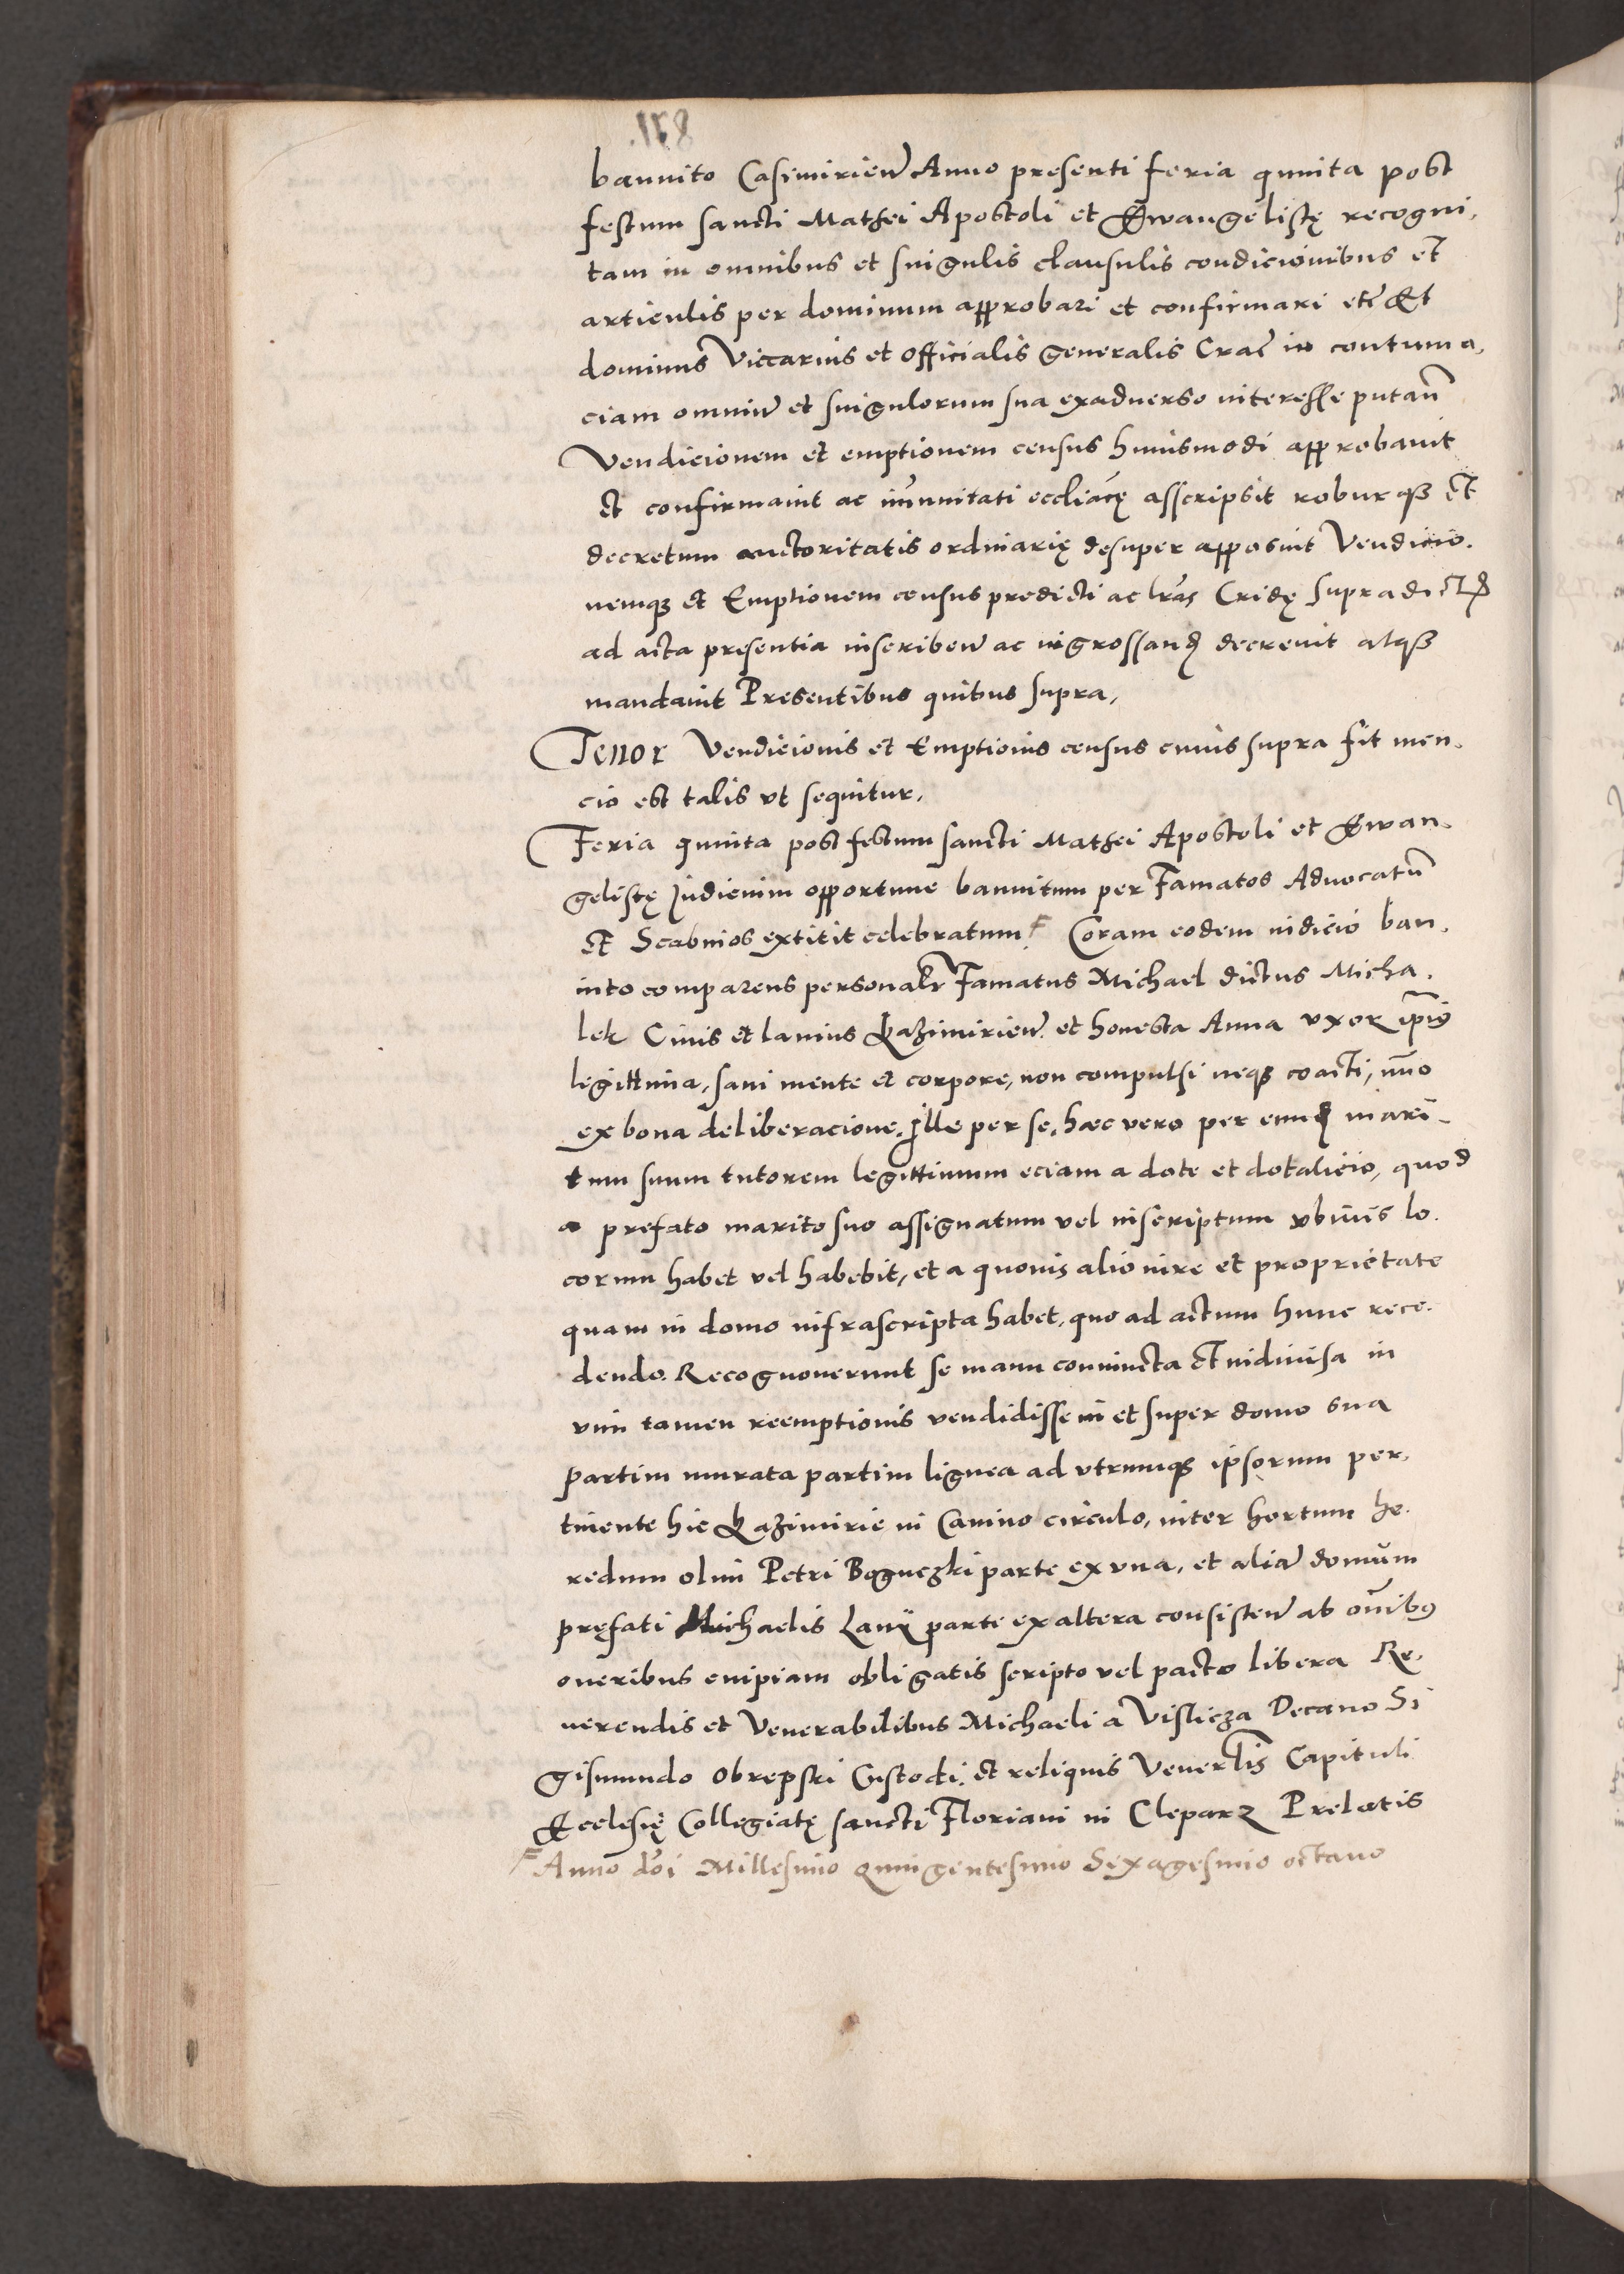 bannito Casimirieñ Anno presenti feria quinta post
festum sancti Mathei Apostoli et Ewangelistę recogni,
tam in omnibus et singulis clausulis condicionibus et
articulis per dominum approbari et confirmari etc̃ Et
dominus Viccarius et officialis generalis Crac̃ in contuma,
ciam omniũ et singulorum sua exaduerso interesse putañ
Vendicionem et emptionem census huiusmodi approbauit
et confirmauit ac im̃unitati eccl̃iacę asscripsit roburqȝ et
decretum auctoritatis ordinarię desuper apposuit Vendicio.
nemqȝ et Emptionem census predicti ac l̃ras Cridę supradict
ad acta presentia inscribeñ ac ingrossanḍ decreuit atqȝ
mandauit Presentibus quibus supra,
Tenor Vendicionis et Emptionis census cuius supra fit men,
cio est talis vt sequitur,
Feria quinta post festum sancti Mathei Apostoli et Ewan,
gelistę Judicium opportune bannitum per Famatos Aduocatũ
et Scabinos extitit celebratum F Coram eodem iudicio ban,
nito comparens personalr̃ Famatus Michael dictus Micha,
lek Ciuis et lanius Kazimirieñ et honesta Anna vxor ip̃ius
legittima, sani mente et corpore, non compulsi neqȝ coacti, im̃o
ex bona deliberacione, Ille per se, hæc vero per eund mari-
tum suum tutorem legittimum eciam a dote et dotalicio, quod
a prefato marito suo assignatum vel inscriptum vbiuis lo.
corum habet vel habebit, et a quouis alio iure et proprietate
quam in domo infrascripta habet, quo ad actum hunc rece.
dendo. Recognouerunt se manu coniuncta et indiuisa in
vim tamen reemptionis vendidisse in et super domo sua
partim murata partim lignea ad vtrumqȝ ipsorum per,
tinente hic Kazimirie in Camino circulo, inter hortum he.
redum olim Petri Boguezki parte ex vna, et aliã domum
pręfati Michaelis Lanij parte ex altera consisteñ ab om̃ibus
oneribus cuipiam obligatis scripto vel pacto libera Re,
uerendis et Venerabilibus Michaeli a Vislicza Decano Si
gismundo Obrepski Custodi, et reliquis Venerl̃is Capituli
Ecclesię Collegiatę sancti Floriani in Cleparz Prelatis
F Anno dõi Millesimo Quingentesimo Sexagesimo octauo